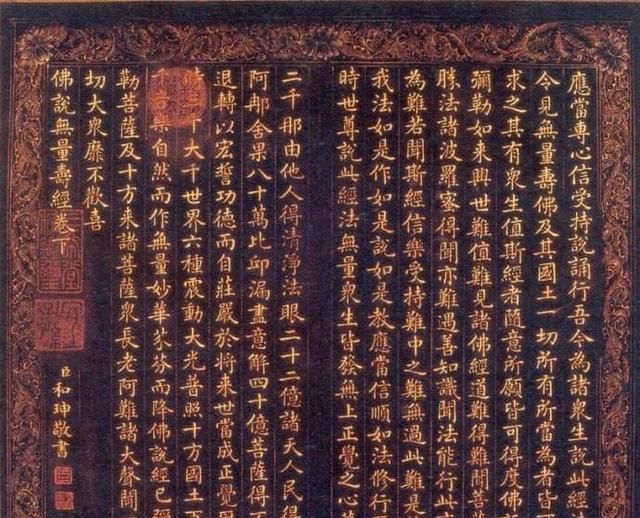 應當專心信受持說誦行吾今為諸眾生說此經
今見無量壽佛及其國土一切所有所當為者皆
求之其有眾生值斯經者隨意所願皆可得度佛
彌勒如來興世難值難見諸佛經道難得難聞菩
勝法諸波羅蜜得聞亦難遇善知識聞法能行此
為難若聞斯經信樂受持難中之難無過此難是
我法如是作如是說如是教應當信順如法修行
時世尊說此經法無量眾生皆發無上正覺之心
二千那由他人得清淨法眼二十二億諸天人民得
阿那含果八十萬比邱漏盡意解四十億菩薩得
退轉以宏誓功德而自莊嚴於將來世當成正覺
時三千大千世界六種震動大光普照十方國土
千音樂自然而作無量妙華芬芬而降佛說經已彌
勒菩薩及十方來諸菩薩眾長老阿難諸大聲聞
切大眾靡不歡喜
佛說無量壽經卷下
臣和珅敬書